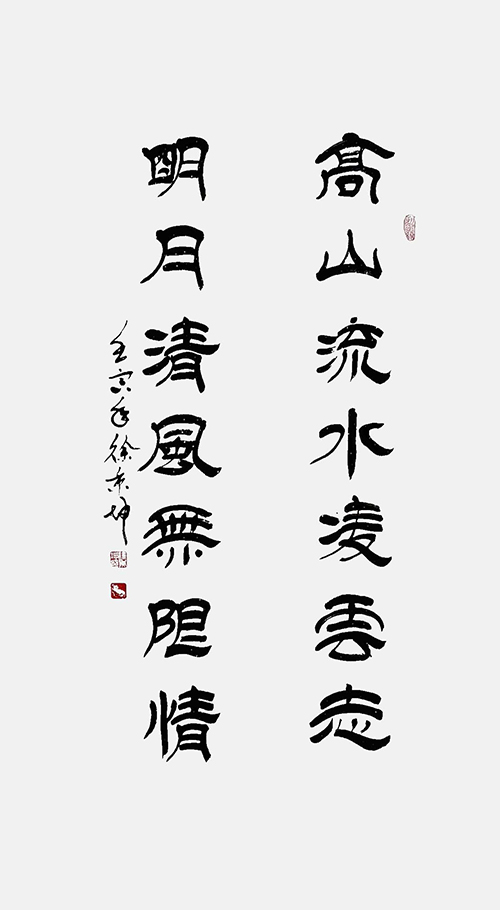 高山流水凌雲志
明月清風無限情
壬寅年徐